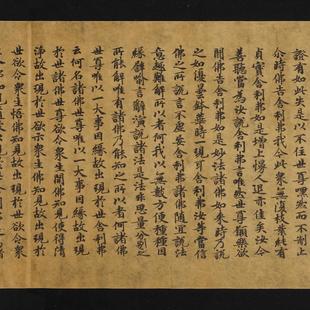 證有如此失是以不住世尊嘿然而不制止
尒時佛告舍利弗我今此衆无復枝葉純有
貞實舍利弗如是增上慢人退亦佳矣汝今
善聽當為汝說舍利弗言唯然世尊願樂欲
聞佛告舍利弗如是妙法諸佛如來時乃說
之如優曇鉢華時一現耳舍利弗汝等當信
佛之所說言不虛妄舍利弗諸佛隨宜說法
意趣難解所以者何我以无數方便種種因
緣譬喻言辭演說諸法是法非思量分別之
所能解唯有諸佛乃能知之所以者何諸佛
世尊唯以一大事因緣故出現於世舍利弗
云何名諸佛世尊唯以一大事因緣故出現
於世諸佛世尊欲令衆生開佛知見使得清
淨故出現於世欲示衆生佛知見故出現於
世欲令衆生悟佛知見故出現於世欲令衆